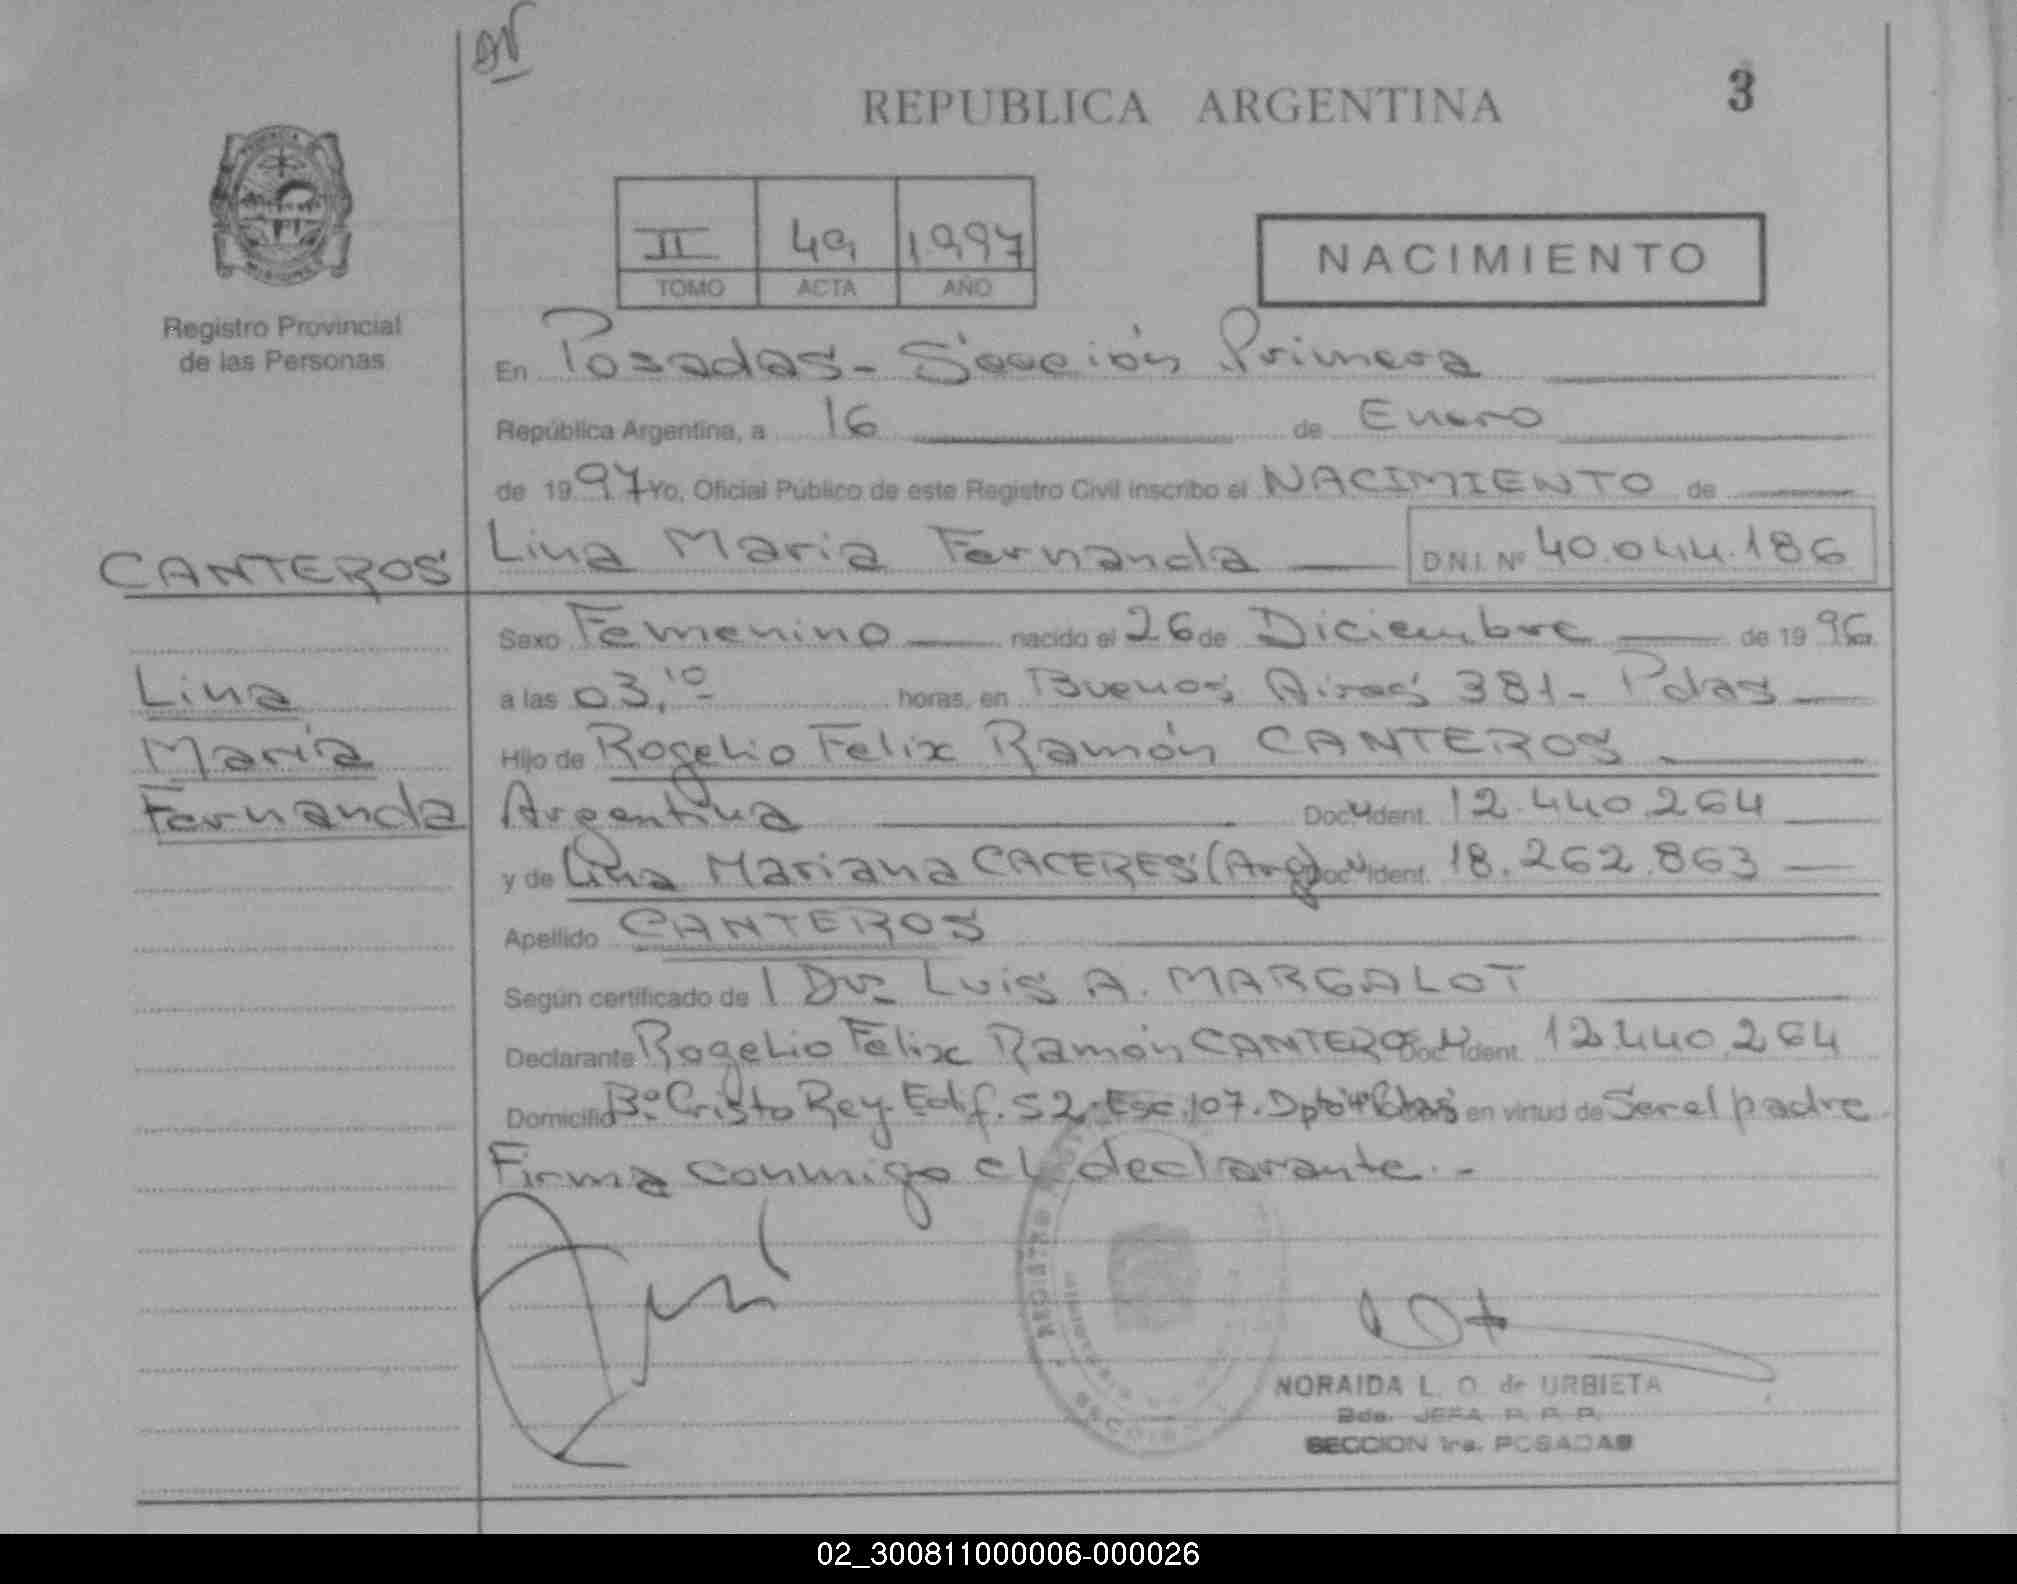 REPUBLICA ARGENTINA
3
Registro Provincial
de las Personas
II 49 1997
TOMO ACTA AÑO
NACIMIENTO
En Posadas - Sección Primera
República Argentina, a 16 de Enero
de 1997 Yo, Oficial Público de este Registro Civil inscribo el NACIMIENTO de
CANTEROS
Lina Maria Fernanda D.N.I. Nº 40.044.186
Sexo Femenino nacido el 26 de Diciembre de 1996
Lina
María
Fernanda
a las 03,10 horas, en Buenos Aires 381 - Pdas
Hijo de Rogelio Felix Ramón CANTEROS
Argentina Doc. Ident. 12.440.264
y de Lina Mariana CACERES (Arg) Doc. Ident. 18.262.863
Apellido CANTEROS
Según certificado de Luis A. MARGALOT
Declarante Rogelio Félix Ramón CANTEROS Doc. Ident. 12.440.264
Domicilio Bº Cristo Rey. Edif. 52. Esc. 107. Dpto en virtud de Ser el padre
Firma conmigo el declarante. -
REGISTRO
SECCION
NORAIDA L. O. de URBIETA
JEFA
SECCION 1ra. POSADAS
02_300811000006-000026